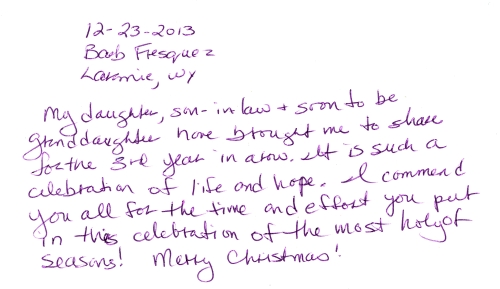 12-23-2013
Barb Fresquez
Laramie, WY
My daughter, son-in law + soon to be
granddaughter have brought me to share
for the 3rd year in arow. It is such a
celebration of life and hope. I commend
you all for the time and effort you put
in this celebration of the most holy of
seasons! Merry Christmas!